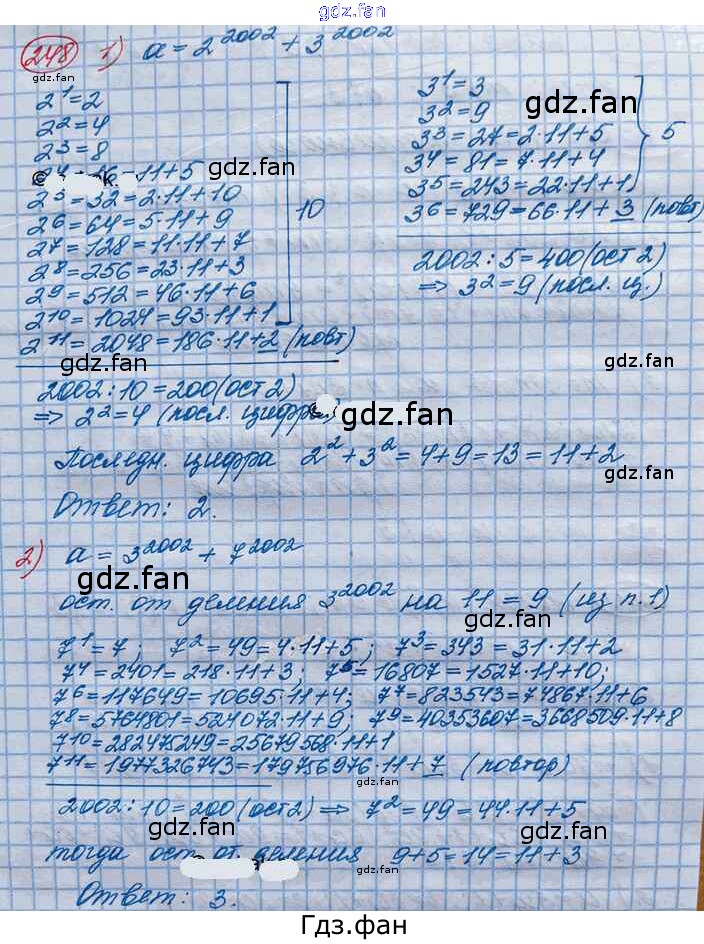 gdz.fan
248 1) a = 2^2002 + 3^2002
gdz.fan
2^1 = 2
2^2 = 4
2^3 = 8
11 + 5
2^5 = 32 = 2·11 + 10
2^6 = 64 = 5·11 + 9
2^7 = 128 = 11·11 + 7
2^8 = 256 = 23·11 + 3
2^9 = 512 = 46·11 + 6
2^10 = 1024 = 93·11 + 1
10
2^11 = 2048 = 186·11 + 2 (повт)
gdz.fan
3^1 = 3
3^2 = 9
gdz.fan
3^3 = 27 = 2·11 + 5
3^4 = 81 = 7·11 + 4
3^5 = 243 = 22·11 + 1
5
3^6 = 729 = 66·11 + 3 (повт)
gdz.fan
gdz.fan
2002 : 5 = 400 (ост 2)
=> 3^2 = 9 (посл. ц.)
gdz.fan
2002 : 10 = 200 (ост 2)
=> 2^2 = 4 (посл. цифра)
gdz.fan
Последн. цифра 2^2 + 3^2 = 4 + 9 = 13 = 11 + 2
gdz.fan
Ответ: 2.
gdz.fan
2) a = 3^2002 + 7^2002
gdz.fan
gdz.fan
ост. от деления 3^2002 на 11 = 9 (из п.1)
gdz.fan
7^1 = 7; 7^2 = 49 = 4·11 + 5; 7^3 = 343 = 31·11 + 2
7^4 = 2401 = 218·11 + 3; 7^5 = 16807 = 1527·11 + 10;
7^6 = 117649 = 10695·11 + 4; 7^7 = 823543 = 74867·11 + 6
7^8 = 5764801 = 524072·11 + 9; 7^9 = 40353607 = 3668509·11 + 8
7^10 = 282475249 = 25679568·11 + 1
7^11 = 1977326743 = 179756976·11 + 7 (повтор)
gdz.fan
2002 : 10 = 200 (ост 2) => 7^2 = 49 = 44·11 + 5
gdz.fan
gdz.fan
тогда ост. от деления 9 + 5 = 14 = 11 + 3
gdz.fan
Ответ: 3.
Гдз.фан